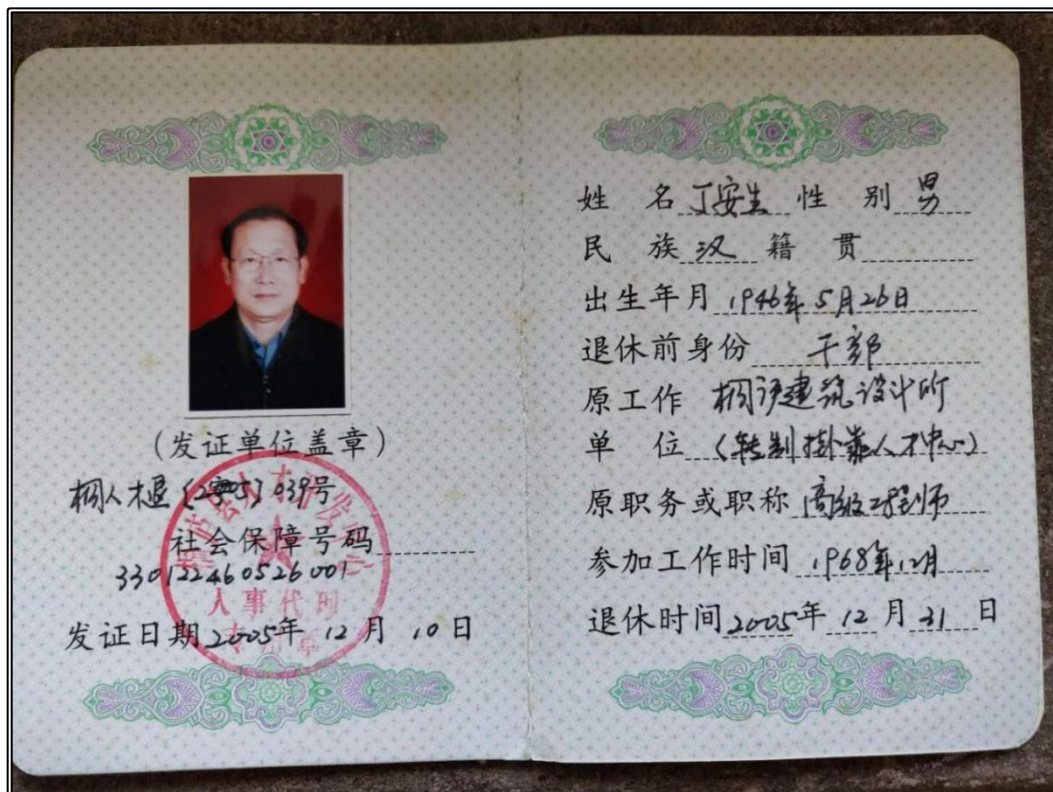 (发证单位盖章)
桐人才退(2005)039号
社会保障号码
330122460526001
人事代理
发证日期2005年 12 月 10 日
姓 名 丁安生 性 别 男
民 族 汉 籍 贯
出生年月 1946年5月26日
退休前身份 干部
原工作 桐庐建筑设计所
单 位 (转制挂靠人才中心)
原职务或职称 高级工程师
参加工作时间 1968年12月
退休时间 2005年 12 月 31 日